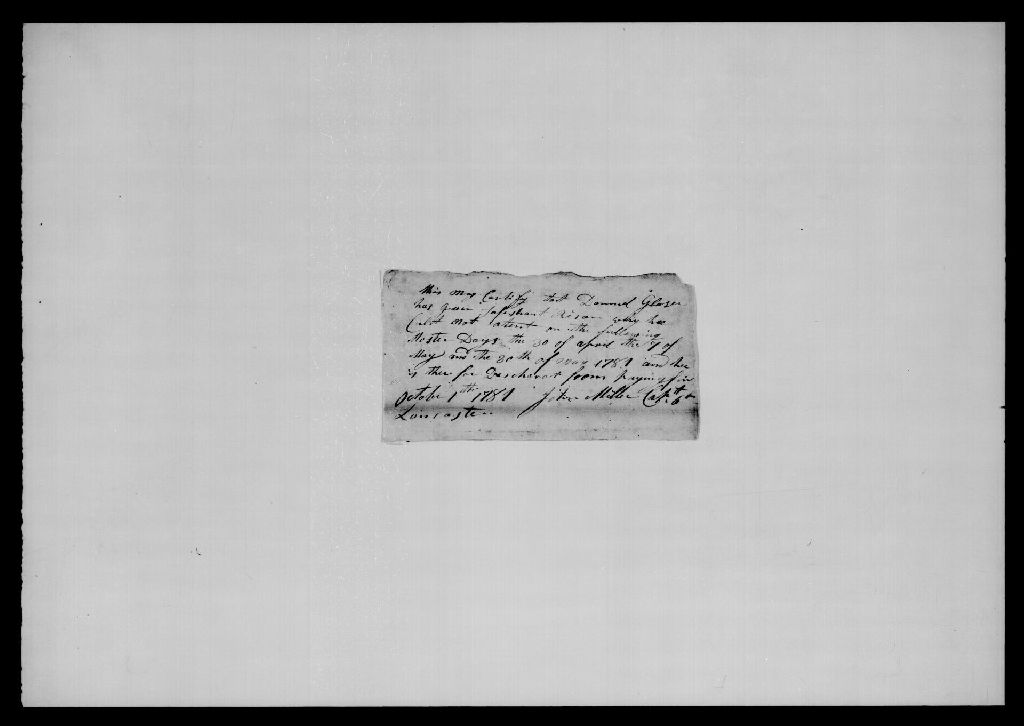 this may Certify that Danniel Glaser
has given sufishant Rison why he
Cult not atent on the following
Moster Days the 30 of april the 9 of
May and the 30th of May 1781 and he
is ther for Dischargt from paying fin
October 1th 1781 John Miller Capt
Lancaster